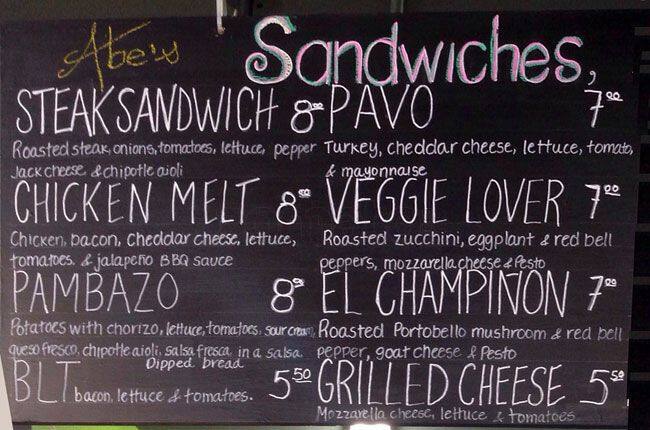 Abe's
Sandwiches,
STEAK SANDWICH 8⁰⁰
Roasted steak, onions, tomatoes, lettuce, pepper
Jack cheese, & chipotle aioli
CHICKEN MELT 8⁰⁰
Chicken, bacon, Cheddar cheese, lettuce,
tomatoes. & jalapeño BBQ sauce
PAMBAZO 8⁰⁰
Potatoes with chorizo, lettuce, tomatoes, sour cream,
queso fresco, chipotle aioli, salsa fresca, in a salsa
Dipped bread
BLT 5⁵⁰
bacon, lettuce & tomatoes.
PAVO 7⁰⁰
Turkey, cheddar cheese, lettuce, tomato,
& mayonnaise
VEGGIE LOVER 7⁰⁰
Roasted zucchini, eggplant & red bell
peppers, mozzarella cheese & Pesto
EL CHAMPIÑON 7⁰⁰
Roasted Portobello mushroom & red bell
pepper, goat cheese & Pesto
GRILLED CHEESE 5⁵⁰
Mozzarella cheese, lettuce & tomatoes